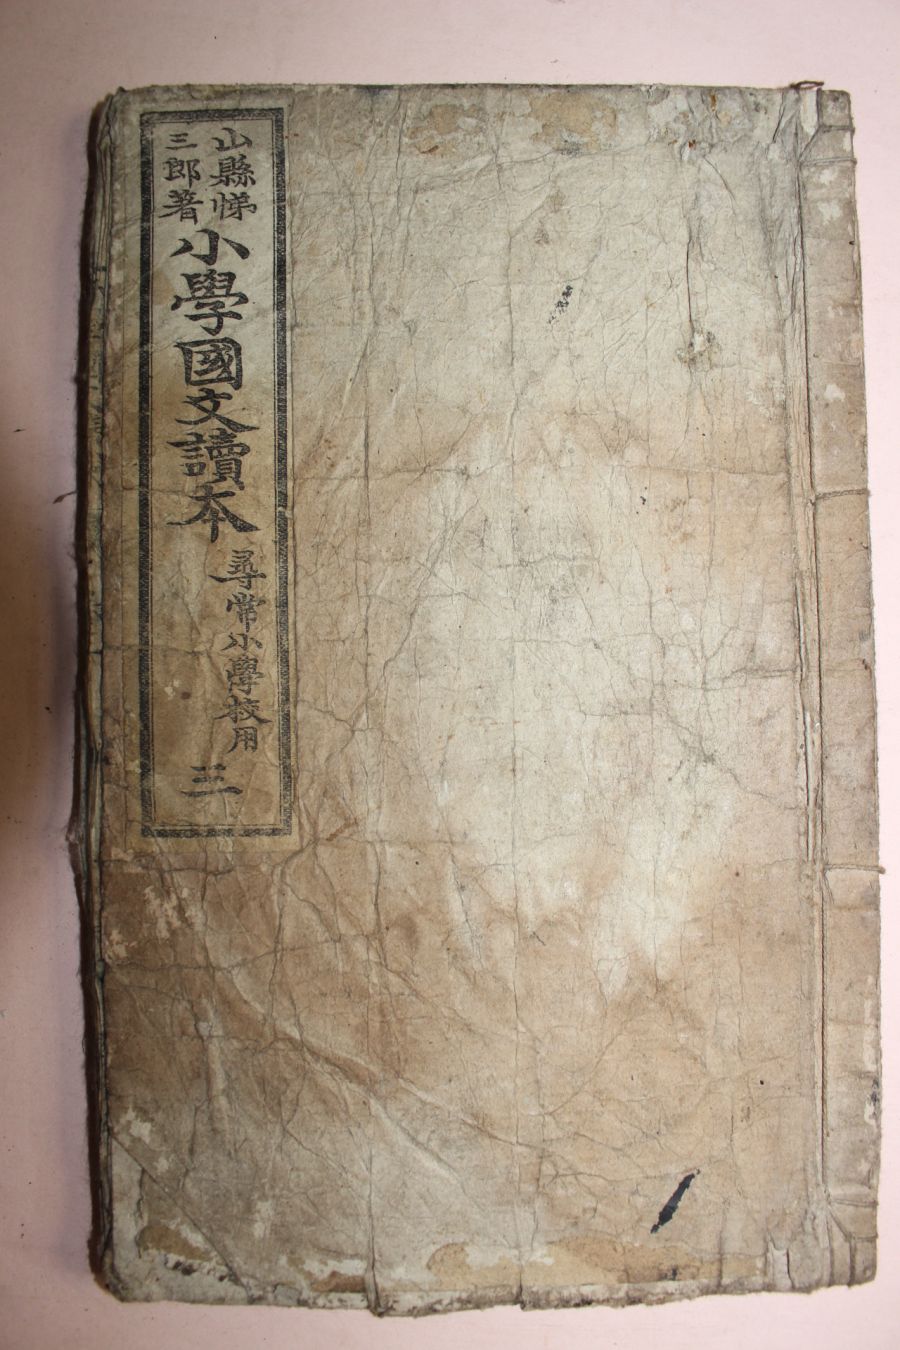 山縣悌
三郎著
小學國文讀本
尋常小學校用
三